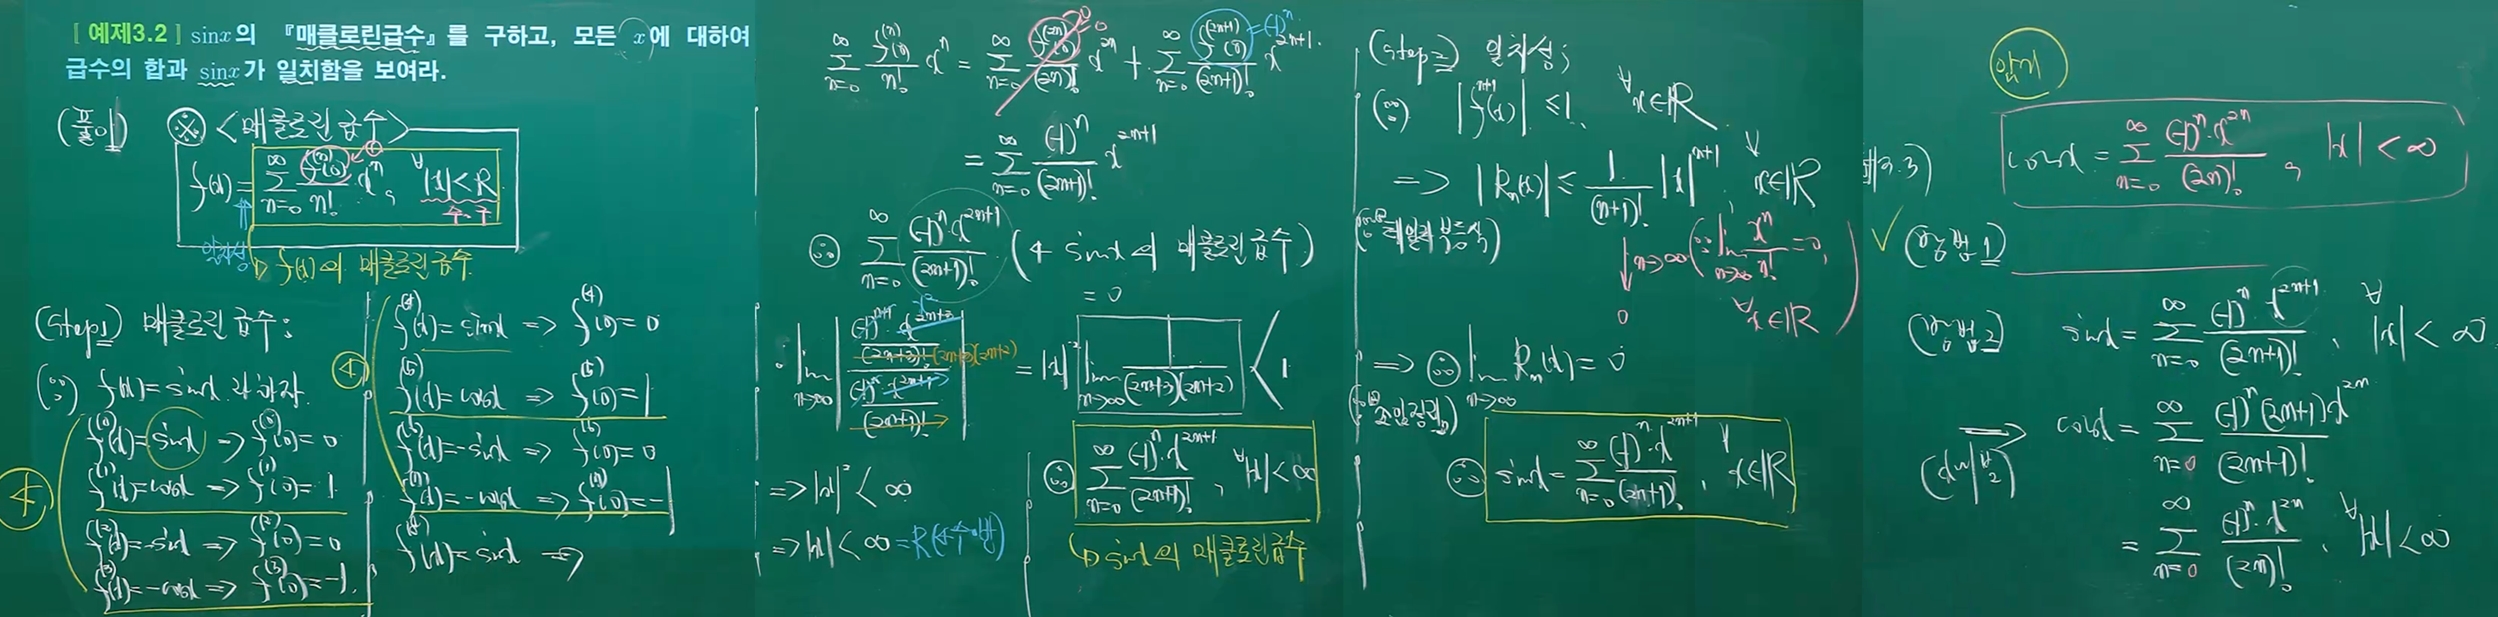 [ 예제3.2 ] sin x의 『매클로린급수』를 구하고, 모든 x에 대하여
급수의 합과 sin x가 일치함을 보여라.
(풀이) ※ <매클로린 급수>
f(x) = ∑_{n=0}^{∞} f^{(n)}(0)/n! · x^n, ∀|x| < R
수·구
일치성
↳ f(x)의 매클로린급수
(step1) 매클로린 급수;
(∵) f(x) = sin x 라 하자.
④ f^{(0)}(x) = sin x => f^{(0)}(0) = 0
f^{(1)}(x) = cos x => f^{(1)}(0) = 1
f^{(2)}(x) = -sin x => f^{(2)}(0) = 0
f^{(3)}(x) = -cos x => f^{(3)}(0) = -1.
④ f^{(4)}(x) = sin x => f^{(4)}(0) = 0
f^{(5)}(x) = cos x => f^{(5)}(0) = 1
f^{(6)}(x) = -sin x => f^{(6)}(0) = 0
f^{(7)}(x) = -cos x => f^{(7)}(0) = -1
f^{(8)}(x) = sin x =>
∑_{n=0}^{∞} f^{(n)}(0)/n! x^n = ∑_{n=0}^{∞} f^{(2n)}(0)/(2n)! x^{2n} + ∑_{n=0}^{∞} f^{(2n+1)}(0)/(2n+1)! x^{2n+1}.
= 0
= (-1)^n
= ∑_{n=0}^{∞} (-1)^n/(2n+1)! x^{2n+1}
∴ ∑_{n=0}^{∞} (-1)^n·x^{2n+1}/(2n+1)! (← sin x의 매클로린급수)
= 0
· lim_{n→∞} | ((-1)^{n+1}·x^{2n+3}/(2n+3)!) / ((-1)^n·x^{2n+1}/(2n+1)!) | = |x|^2 lim_{n→∞} 1/((2n+3)(2n+2)) < 1
x^2
(2n+3)(2n+2)
=> |x|^2 < ∞
=> |x| < ∞ = R(수·반)
∴ ∑_{n=0}^{∞} (-1)^n·x^{2n+1}/(2n+1)!, ∀|x| < ∞
↳ sin x의 매클로린급수
(step2) 일치성;
(∵) |f^{(n+1)}(x)| ≤ 1, ∀x∈ℝ
=> |R_n(x)| ≤ 1/(n+1)! |x|^{n+1}, ∀x∈ℝ
(∵ 테일러 부등식)
↓ n→∞ (∵ lim_{n→∞} x^n/n! = 0, ∀x∈ℝ)
0
=> ∴ lim_{n→∞} R_n(x) = 0
∴ sin x = ∑_{n=0}^{∞} (-1)^n·x^{2n+1}/(2n+1)!, ∀x∈ℝ
암기
cos x = ∑_{n=0}^{∞} (-1)^n·x^{2n}/(2n)!, |x| < ∞
3.3)
✓ (방법1)
(방법2) sin x = ∑_{n=0}^{∞} (-1)^n·x^{2n+1}/(2n+1)!, ∀|x| < ∞
=> cos x = ∑_{n=0}^{∞} (-1)^n(2n+1)x^{2n}/(2n+1)!
= ∑_{n=0}^{∞} (-1)^n·x^{2n}/(2n)!, ∀|x| < ∞